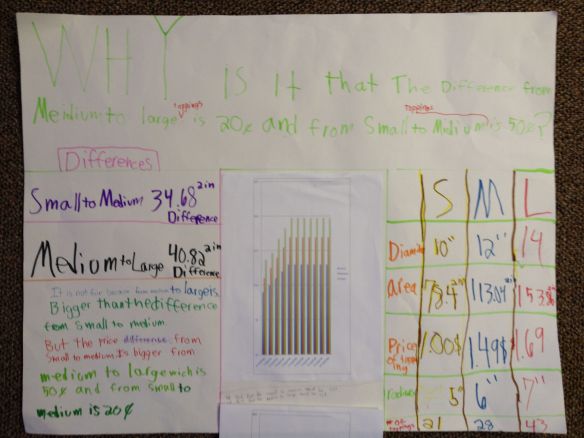 WHY
IS It that The Difference from
Meidium to large toppings is 20¢ and from Small to Midium toppings is 50¢?
Differences
Small to Medium 34.68 2in Difference
Medium to Large 40.82 2in Difference
It is not fair because from medium to large is
Bigger than the difference
from small to medium
But the price difference from
small to medium is bigger from
medium to large wich is
50¢ and from small to
medium is 20¢
S M L
Diameter 10" 12" 14
area 78.4 113.04 153.86
Price of topping 1.00$ 1.49$ 1.69
radius 5" 6" 7"
21 28 43